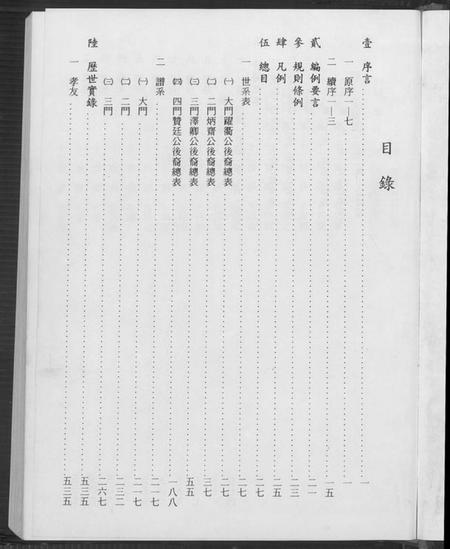 目錄
壹 序言 一
一 原序一—七 一
二 續序一—三 一五
貳 編例要言 二一
參 規則條例 二三
肆 凡例 二五
伍 總目 二七
一 世系表 二七
㈠ 大門躍衢公後裔總表 二七
㈡ 二門炳齋公後裔總表 三七
㈢ 三門澤卿公後裔總表 五五
㈣ 四門贊廷公後裔總表 一八八
二 譜系 二一七
㈠ 大門 二一七
㈡ 二門 二三二
㈢ 三門 二六七
陸 歷世實錄 五三五
一 孝友 五三五